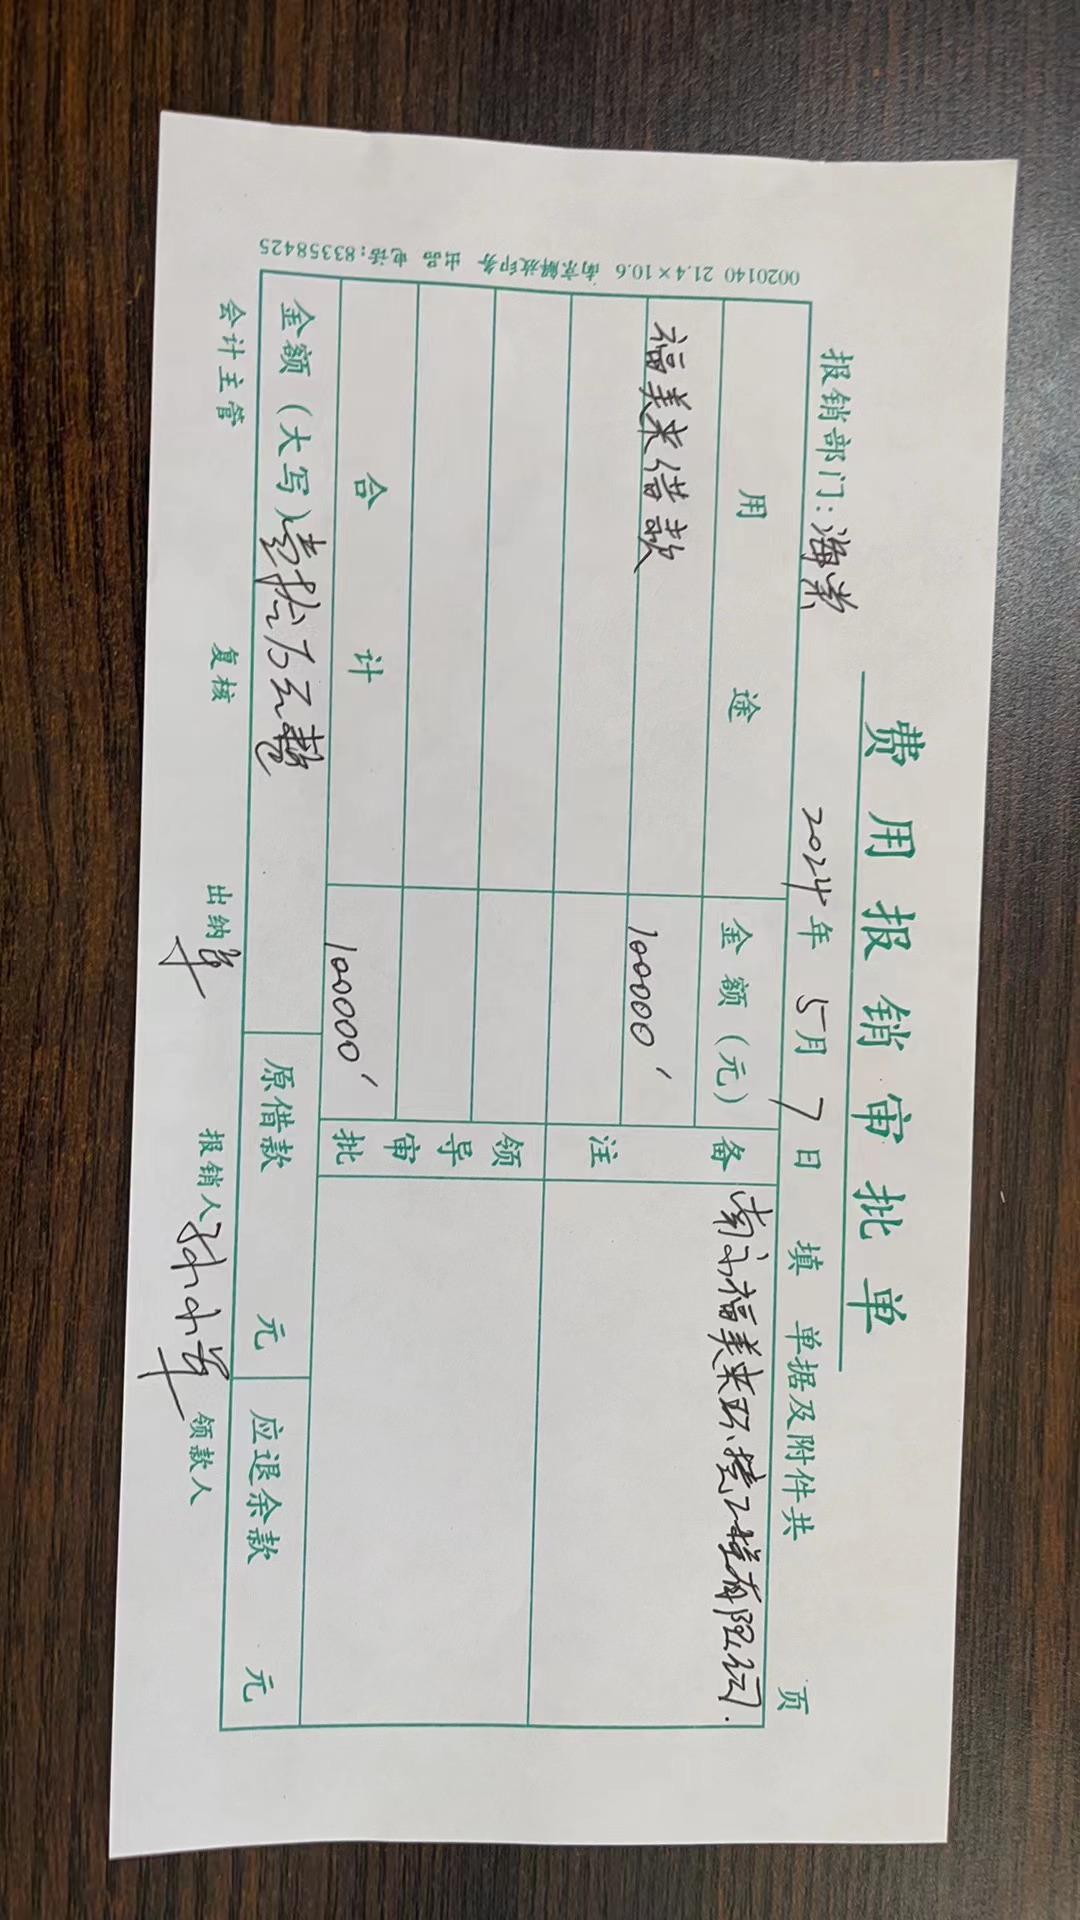 费用报销审批单
报销部门：海岽 2024年 5月 7日 填 单据及附件共 页
用 途 金额（元） 备注 南京福美来环境工程有限公司.
福美来借款 100000
领导审批
合 计 100000
金额（大写）壹拾万元整 原借款 元 应退余款 元
会计主管 复核 出纳 报销人 领款人
0020140 21.4×10.6 南京解放印务 出品 电话:83358425